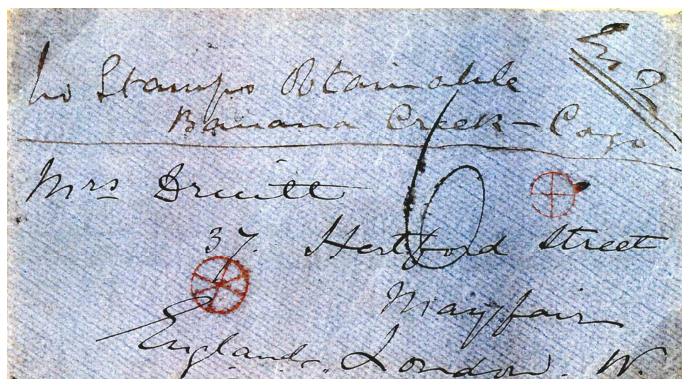 No Stamps Obtainable
Banana Creek - Cogo
Mrs Druitt
6
37. Hertford Street
Mayfair
England. London. W.